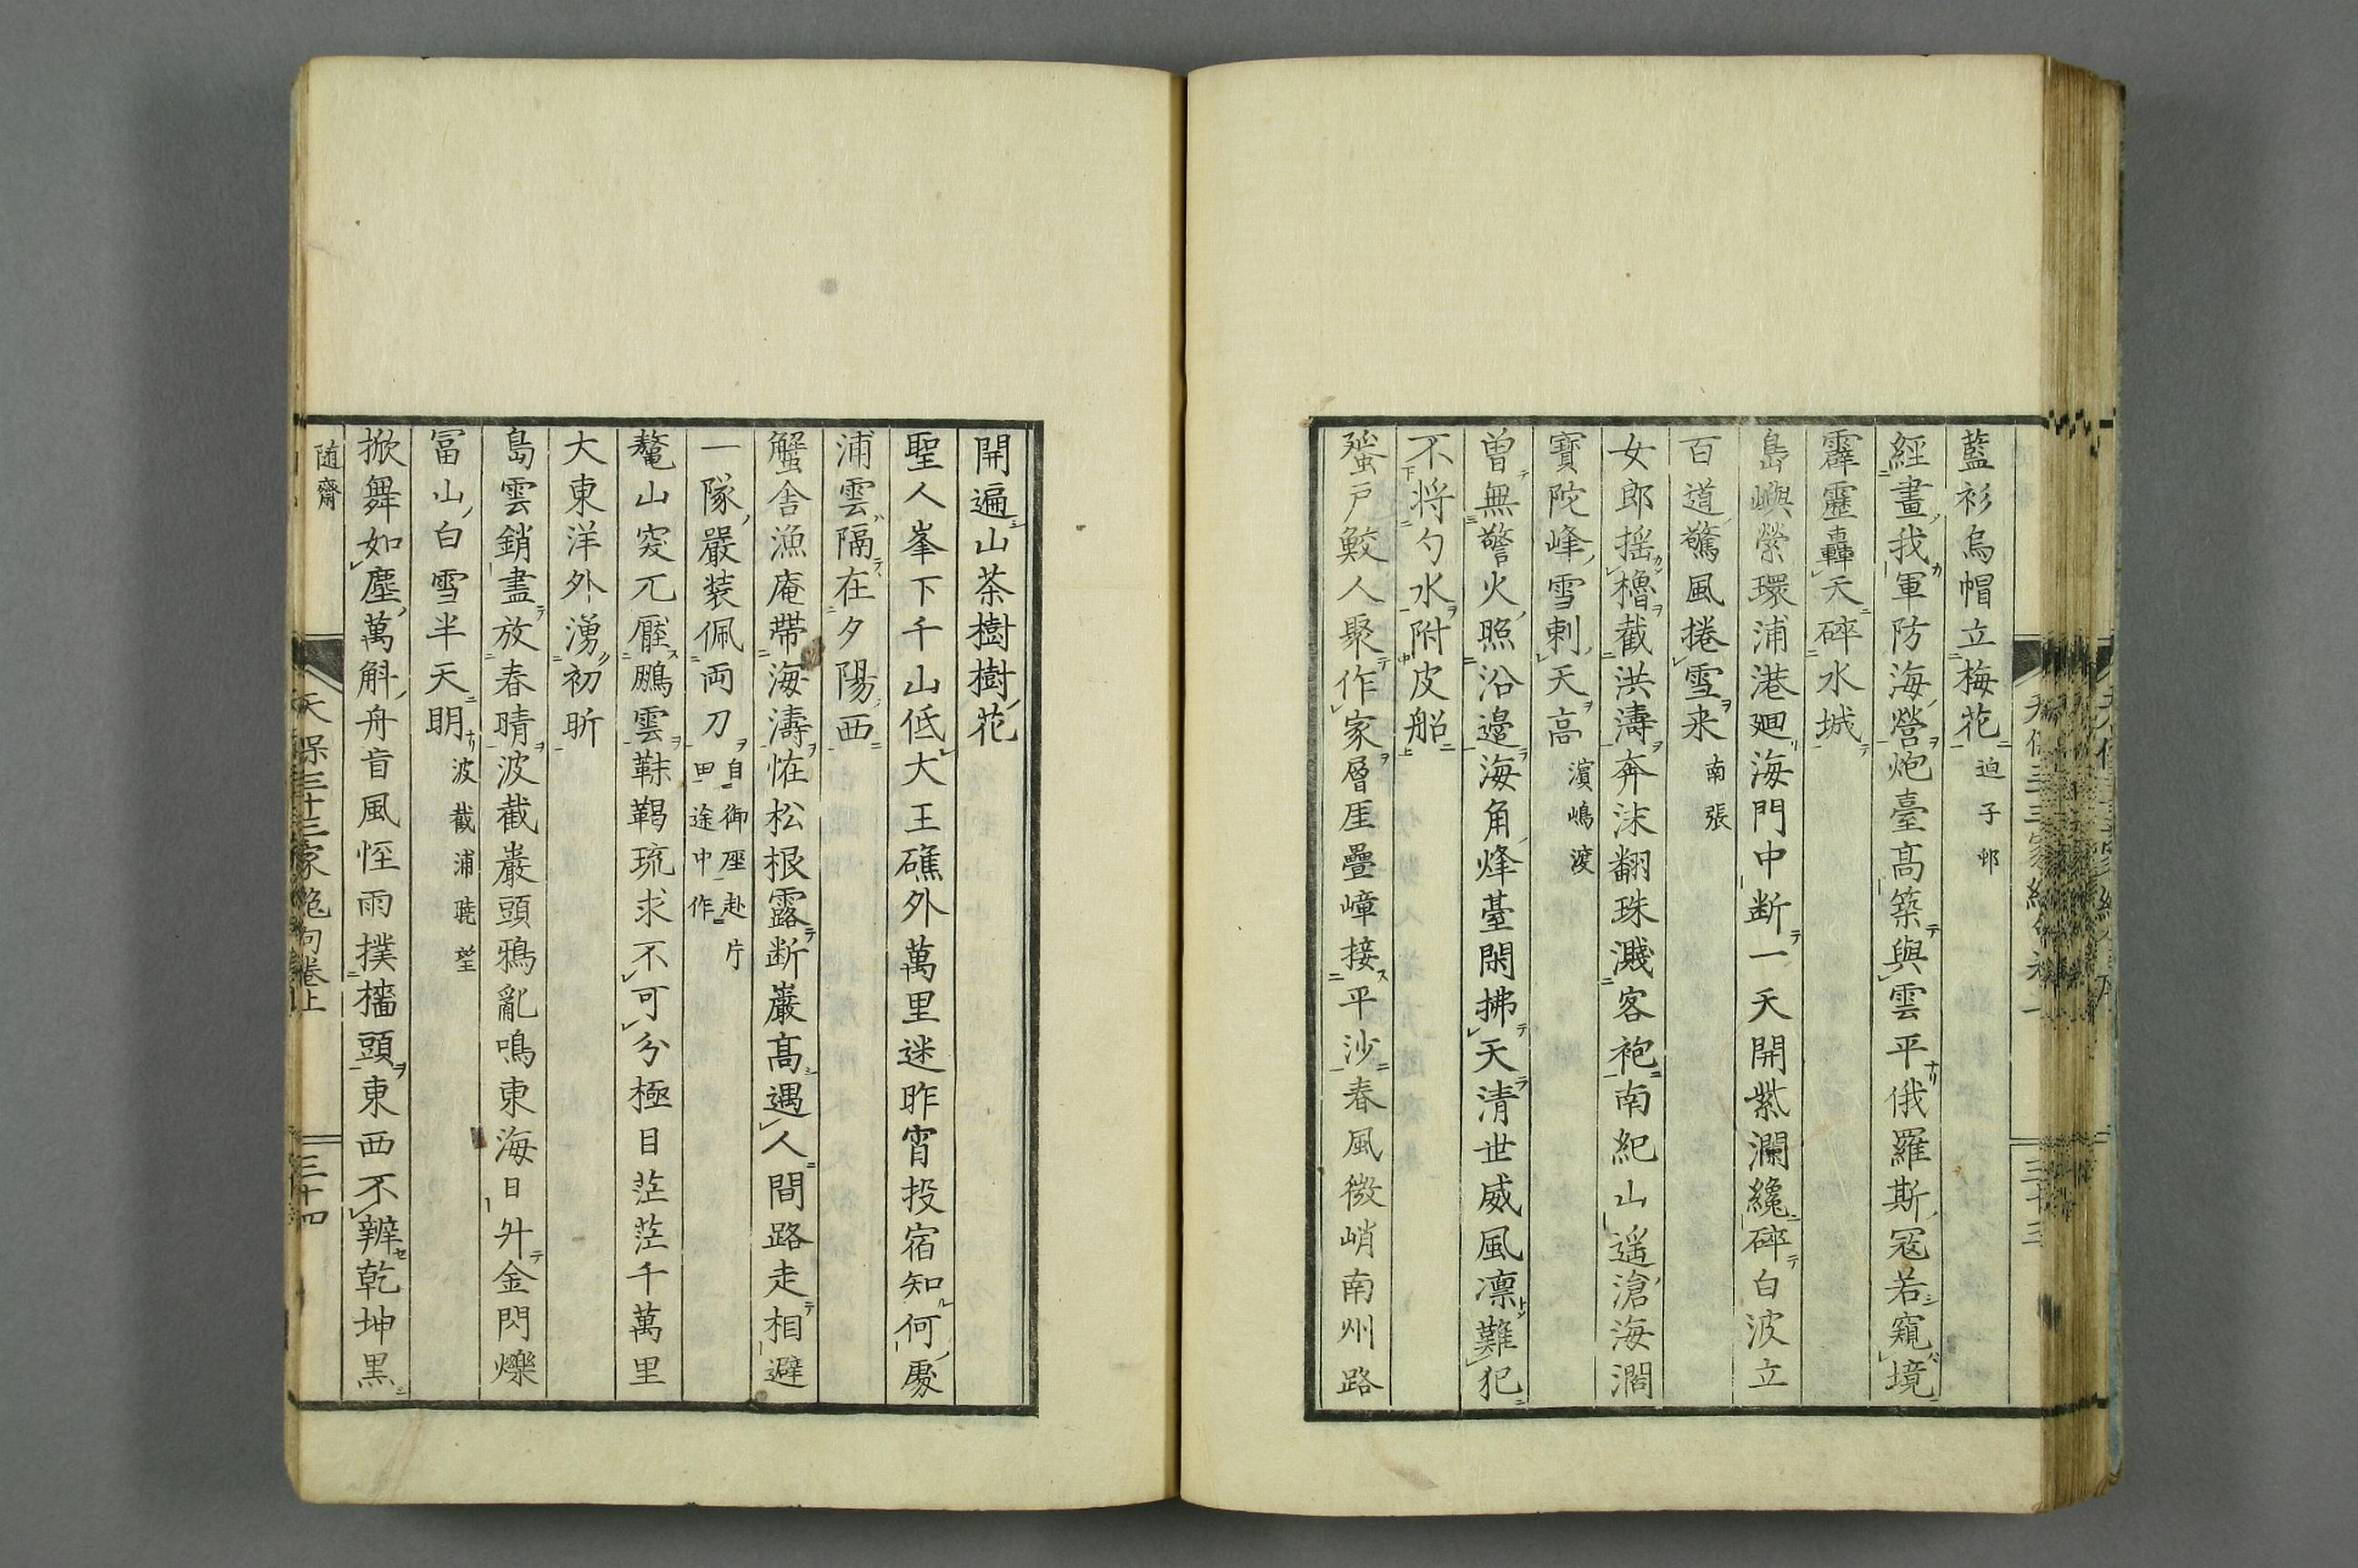 藍衫烏帽立梅花迫子邨
經畫我軍防海營炮臺高築與雲平俄羅斯冦若窺境
霹靂轟天碎水城
島嶼縈環浦港廻海門中断一天開紫瀾纔碎白波立
百道驚風捲雪来南張
女郎揺櫓截洪濤奔沫翻珠濺客袍南紀山遥滄海濶
寶陀峰雪刺天高濱嶋渡
曽無警火照沿邉海角烽臺閑拂天清世威風凛難犯
不将勺水附皮船
蜑戸鮫人聚作家層厓疊嶂接平沙春風微峭南州路
開遍山茶樹樹花
聖人峯下千山低大王礁外萬里迷昨宵投宿知何處
浦雲隔在夕陽西
蟹舎漁庵帶海濤恠松根露断巖高遇人間路走相避
一隊嚴装佩両刀自御座赴片田途中作
鼇山突兀壓鵬雲靺鞨琉求不可分極目茫茫千萬里
大東洋外湧初昕
島雲銷盡放春晴波截巌頭鴉亂鳴東海日升金閃爍
冨山白雪半天明波截浦暁望
掀舞如塵萬斛舟盲風恠雨撲檣頭東西不辨乾坤黒
随齋
天保三十三家絶句卷上
三十四